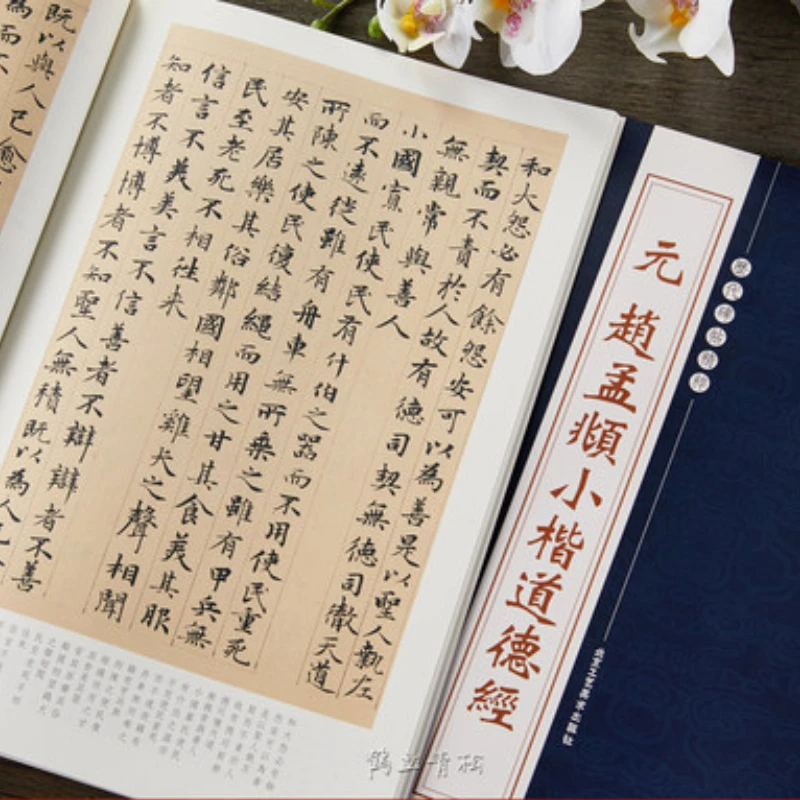 和大怨必有餘怨安可以為善是以聖人執左
契而不責於人故有德司契無德司徹天道
無親常與善人
小國寡民使民有什伯之器而不用使民重死
而不遠徙雖有舟車無所乘之雖有甲兵無
所陳之使民復結繩而用之甘其食美其服
安其居樂其俗鄰國相望雞犬之聲相聞
民至老死不相往来
信言不美美言不信善者不辯辯者不善
知者不博博者不知聖人無積既以為人己
既以與人己愈
為而不
元 趙孟頫小楷道德經
歷代碑帖精粹
北京工艺美术出版社